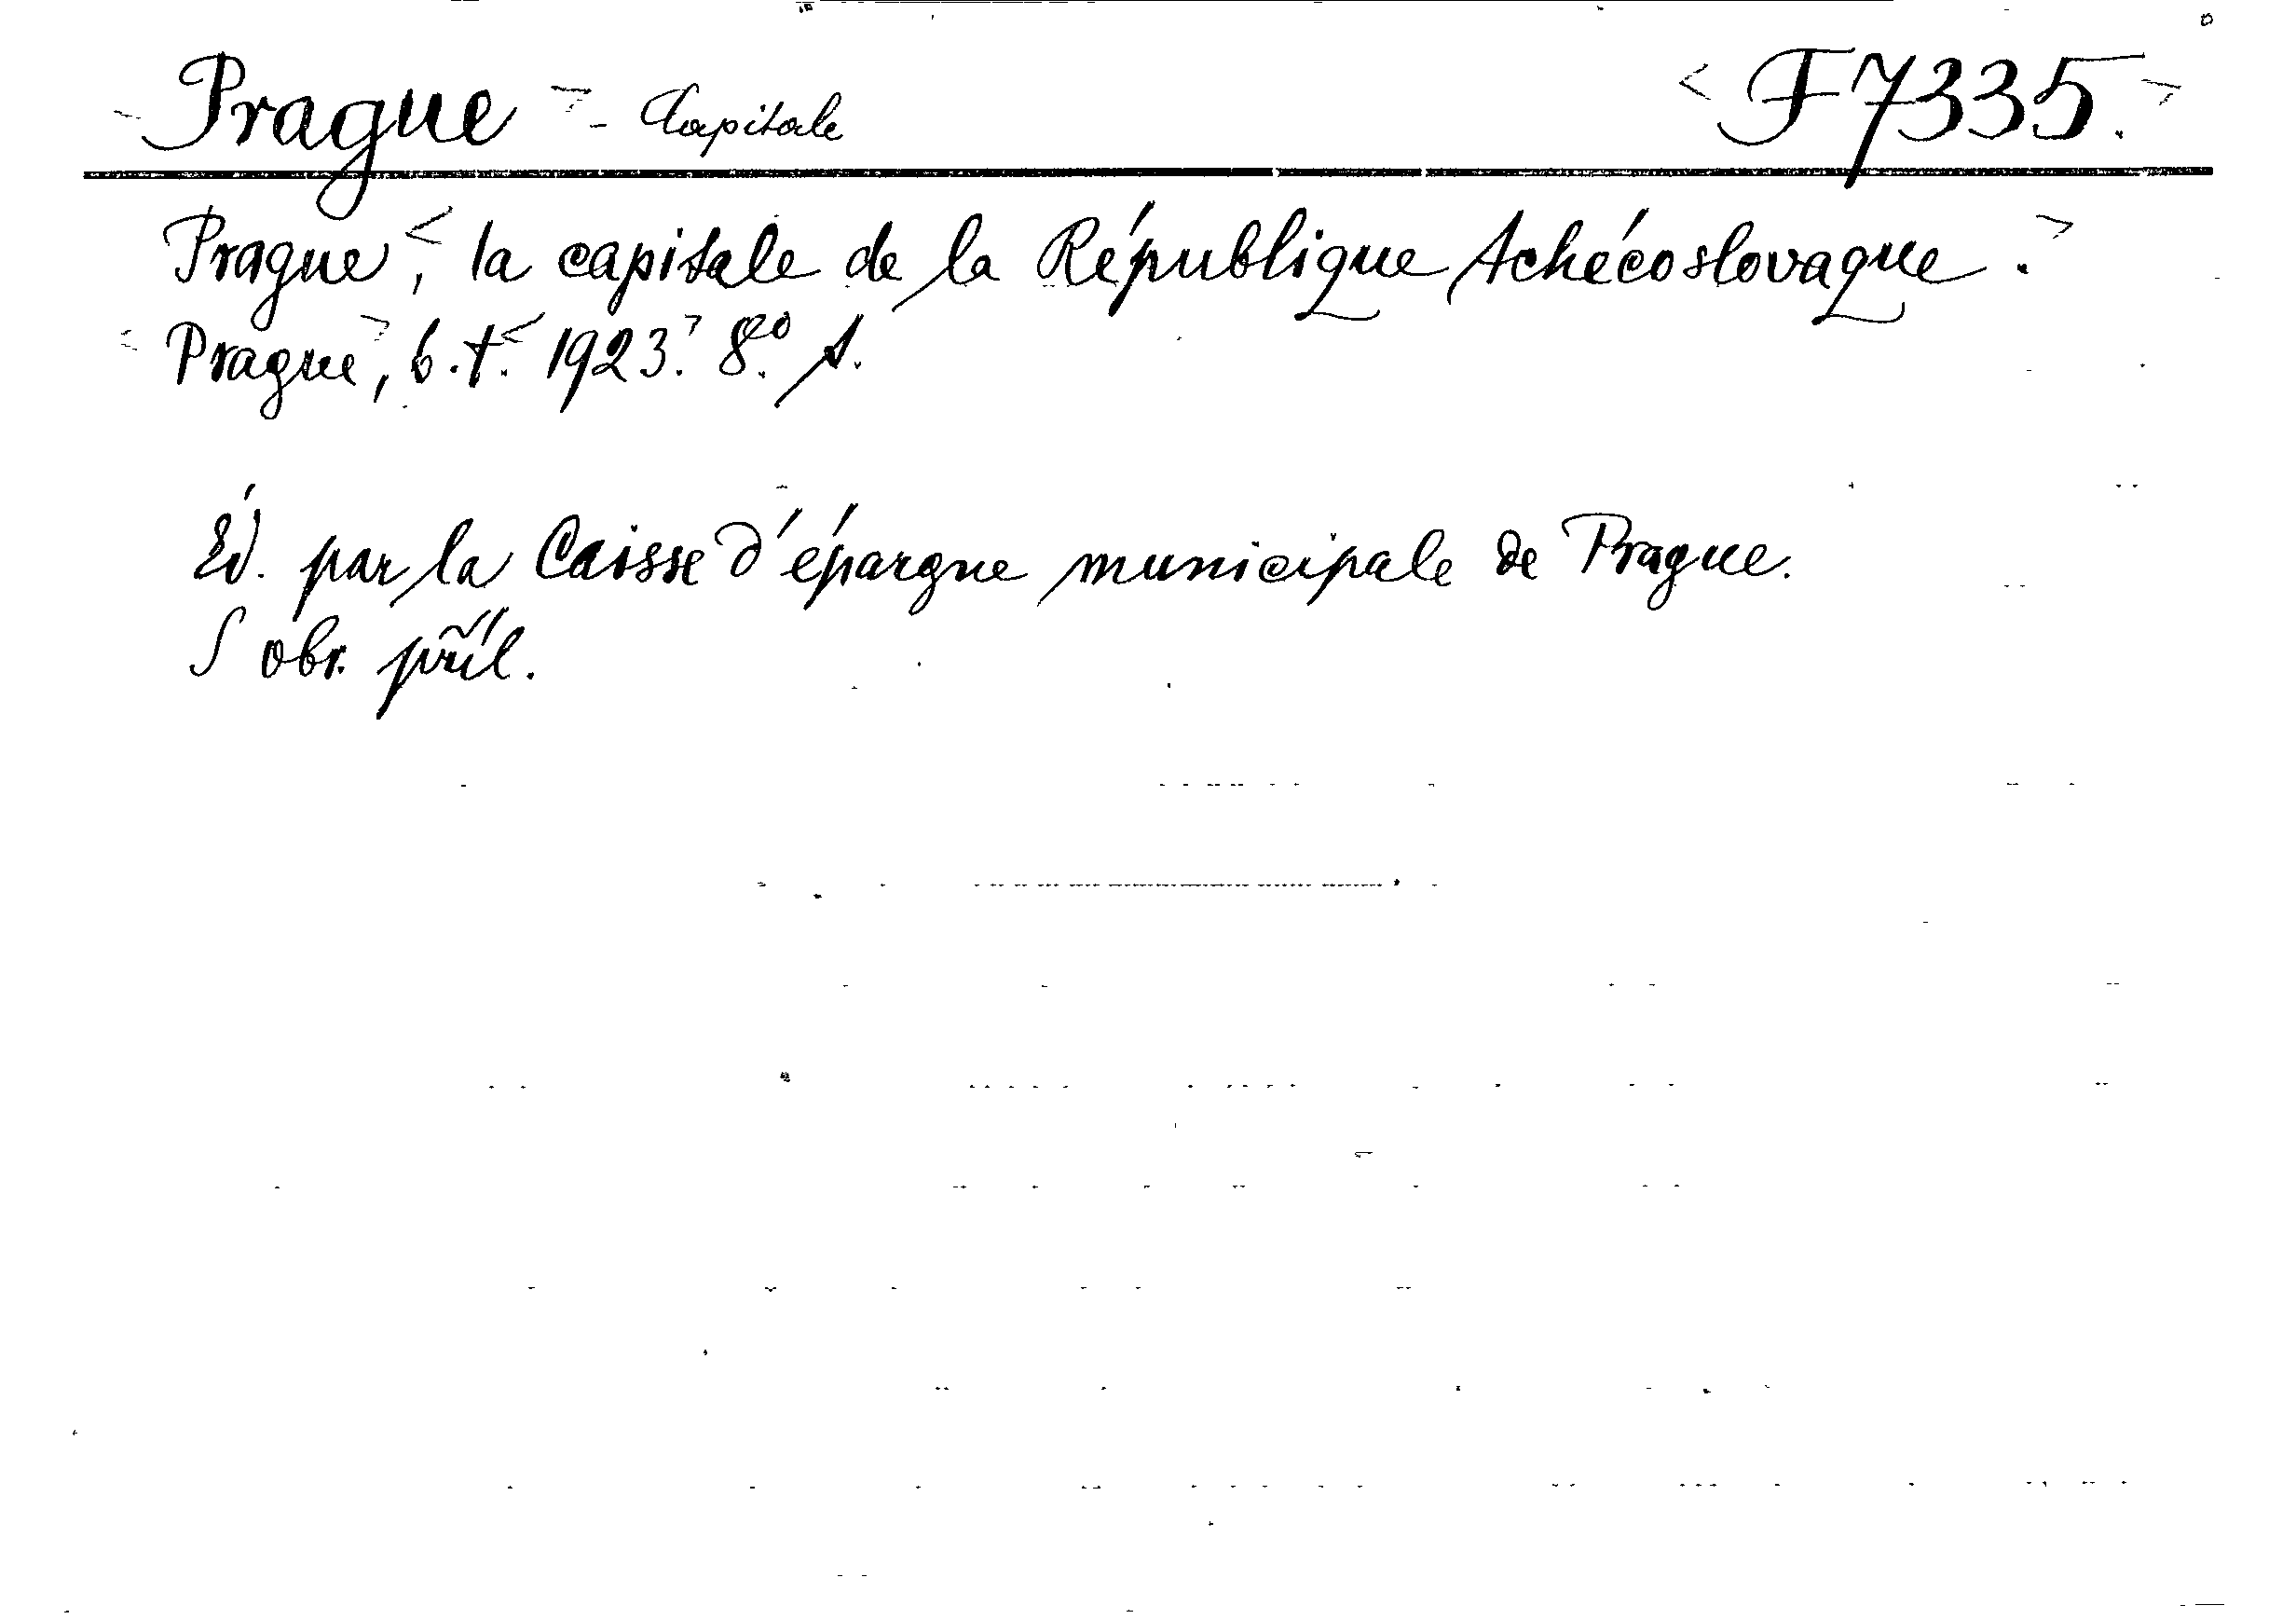 Prague - Capitale F 7335.
Prague, la capitale de la République tchécoslovaque.
Prague, b. t. 1923. 8°. s.
Éd. par la Caisse d'épargne municipale de Prague.
S obr. příl.